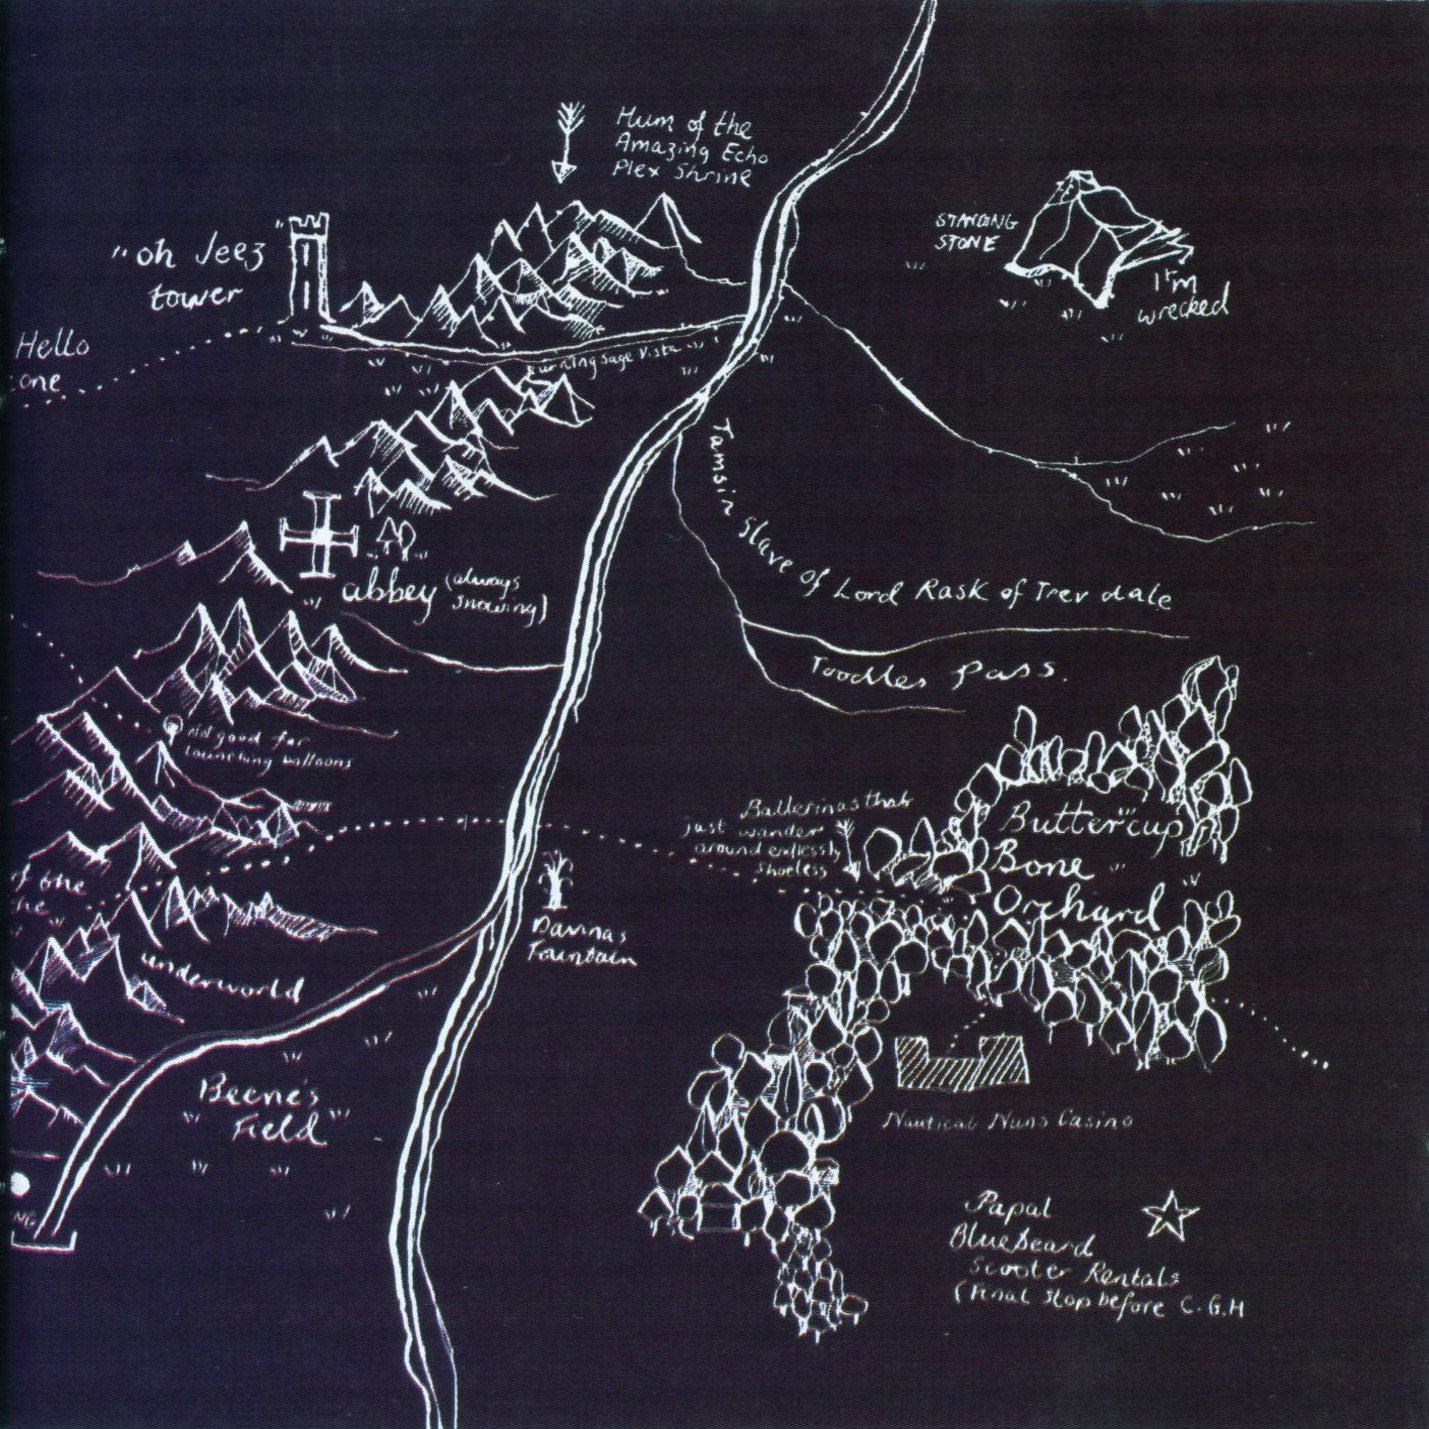 Hum of the
Amazing Echo
Plex Shrine
"oh Jeez
tower
STANDING
STONE
I'm
wrecked
Hello
one
Sage Vista
abbey (always
snowing)
Tamsin slave of Lord Rask of Trevdale
Toodles Pass.
good for
launching balloons
Ballerinas that
just wander
around endlessly
shoeless
Buttercup
Bone
Orchard
of the
he
Davinas
Fountain
underworld
Beene's
Field
Nautical Nuns Casino
NG
Papal
Bluebeard
Scooter Rentals
(Final stop before C.G.H